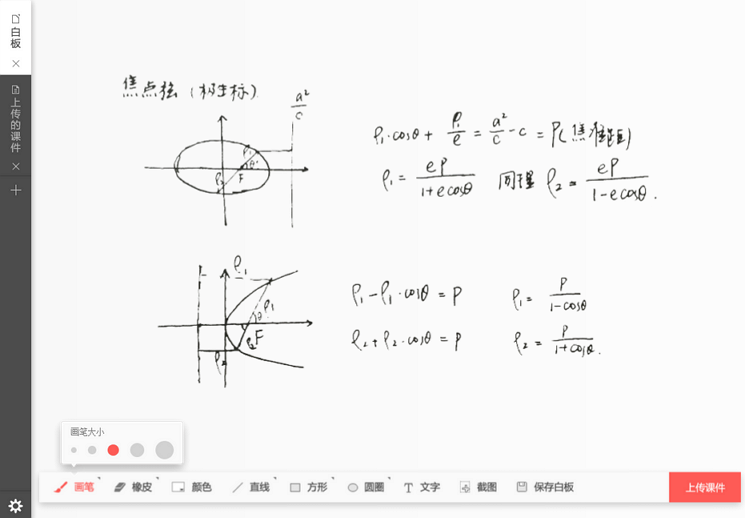 白板
上传的课件
焦点弦(极坐标)
a²/c
ρ₁·cosθ + ρ₁/e = a²/c - c = P(焦准距)
ρ₁ = eP/1+ecosθ 同理 ρ₂ = eP/1-ecosθ.
ρ₁
θ
ρ₂
F
ρ₁
ρ₁
θ
ρ₂
F
ρ₂
ρ₁-ρ₁·cosθ = P ρ₁ = P/1-cosθ
ρ₂+ρ₂·cosθ = P ρ₂ = P/1+cosθ.
画笔大小
画笔 橡皮 颜色 直线 方形 圆圈 T 文字 截图 保存白板 上传课件